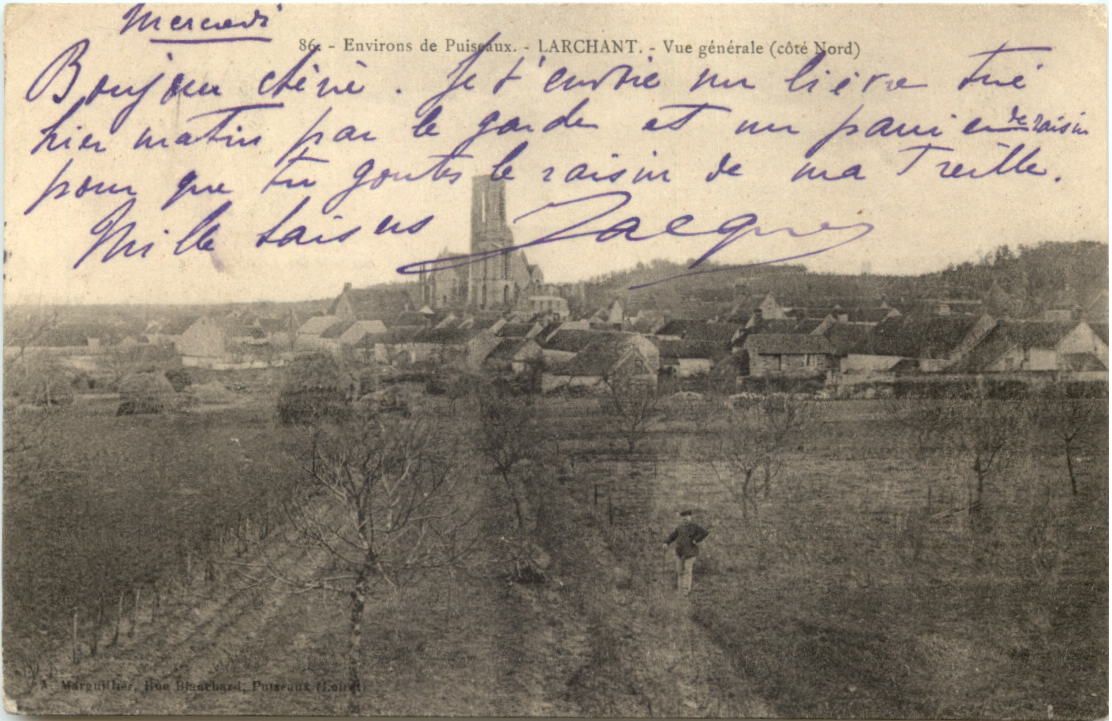 Mercredi
86. - Environs de Puiseaux. - LARCHANT. - Vue générale (côté Nord)
Bonjour chérie. Je t'envoie un lièvre tué
hier matin par le garde et un panier de raisin
pour que tu goutes le raisin de ma Treille.
Mille baisers Jacques
A. Marguillier, Rue Blanchard, Puiseaux (Loiret)